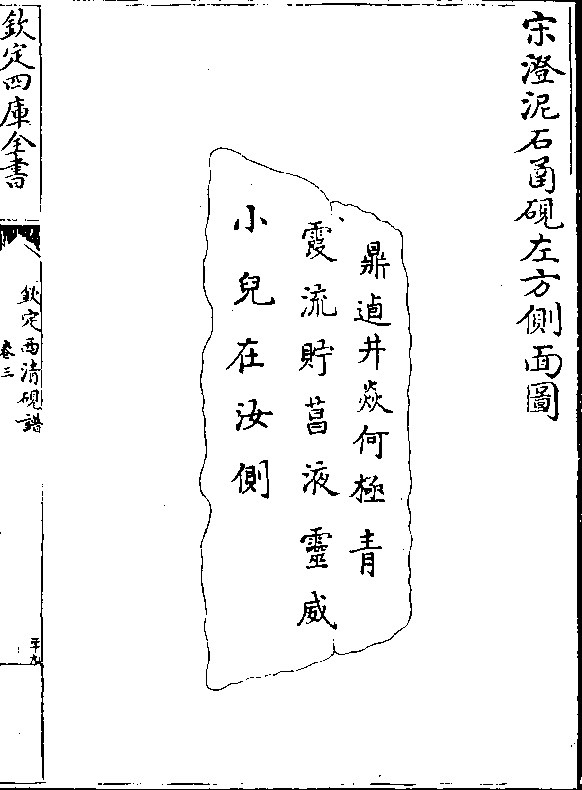 宋澄泥石函硯左方側面圖
鼎逌井焱何極青
霞流貯菖液靈威
小兒在汝側
欽定四庫全書
欽定西清硯譜
卷三